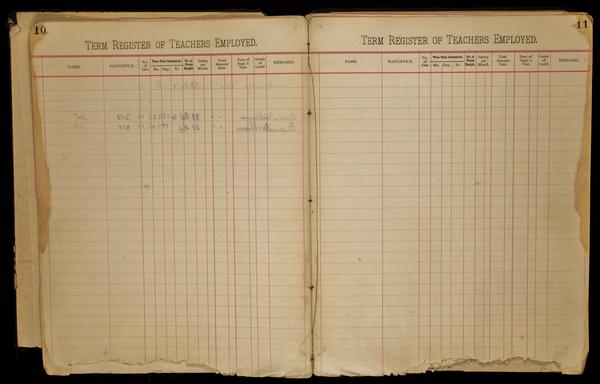 10
TERM REGISTER OF TEACHERS EMPLOYED.
NAME. POSTOFFICE. No. of Dist. When Term Commenced. Mo. Day. Yr. No. of Weeks Taught. Salary per Month. Total Amount Paid. Date of Supt.'s Visit. Grade of Certif. REMARKS.
11
TERM REGISTER OF TEACHERS EMPLOYED.
NAME. POSTOFFICE. No. of Dist. When Term Commenced. Mo. Day. Yr. No. of Weeks Taught. Salary per Month. Total Amount Paid. Date of Supt.'s Visit. Grade of Certif. REMARKS.